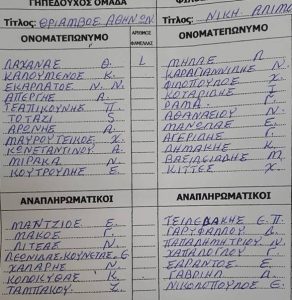 ΓΗΠΕΔΟΥΧΟΣ ΟΜΑΔΑ
Τίτλος: ΘΡΙΑΜΒΟΣ ΑΘΗΝΩΝ
ΟΝΟΜΑΤΕΠΩΝΥΜΟ
ΑΡΙΘΜΟΣ ΦΑΝΕΛΛΑΣ
ΛΑΧΑΝΑΣ Θ. 1
ΚΑΛΟΥΜΕΝΟΣ Κ.
ΣΚΑΡΠΑΤΟΣ Ν. Ν.
ΑΠΕΡΓΗΣ Α.
ΤΣΑΠΙΚΟΥΝΗΣ Π.
ΤΟΤΑΖΙ S.
ΑΡΩΝΗΣ Α.
ΜΑΥΡΟΥΤΣΙΚΟΣ Χ.
ΚΩΝΣΤΑΝΤΙΝΟΥ Α.
ΜΙΡΑΚΑ Ν.
ΚΟΥΤΡΟΥΛΗΣ Ε.
ΑΝΑΠΛΗΡΩΜΑΤΙΚΟΙ
ΜΑΝΤΖΙΟΣ Ε.
ΜΑΚΟΣ Γ.
ΛΙΤΣΑΣ Ν.
ΛΕΟΝΙΔΑΣ
ΧΑΛΑΡΗΣ Ν.
ΚΟΛΟΚΥΘΑΣ Κ.
ΤΑΜΠΑΚΟΥ Ζ.
Τίτλος: ΝΙΚΗ ΑΛΙΜΟ
ΟΝΟΜΑΤΕΠΩΝΥΜΟ
ΜΗΛΑΣ Π.
ΚΑΡΑΓΙΑΝΝΙΔΗΣ Ν.
ΦΙΛΟΠΟΥΛΟΣ Χ.
ΚΟΤΑΡΙΔΗΣ Σ.
ΡΑΜΑ Γ.
ΑΘΑΝΑΣΙΟΥ Ν.
ΜΑΝΩΛΑΣ Ε.
ΑΓΕΡΙΔΗΣ Γ.
ΔΗΜΑΚΗΣ Κ.
ΒΑΣΙΛΕΙΑΔΗΣ Μ.
ΚΙΤΤΕΣ Χ.
ΑΝΑΠΛΗΡΩΜΑΤΙΚΟΙ
ΤΣΙΛΕΔΑΚΗΣ Ε.Π.
ΓΑΡΥΦΑΛΛΟΥ Δ.
ΠΑΠΑΔΗΜΗΤΡΙΟΥ Ν.
ΧΑΤΑΛΟΓΛΟΥ Γ.
ΣΑΡΑΝΤΟΣ Ε.
ΓΑΒΡΙΗΛ Δ.
ΝΙΚΟΛΟΠΟΥΛΟΣ Ε.